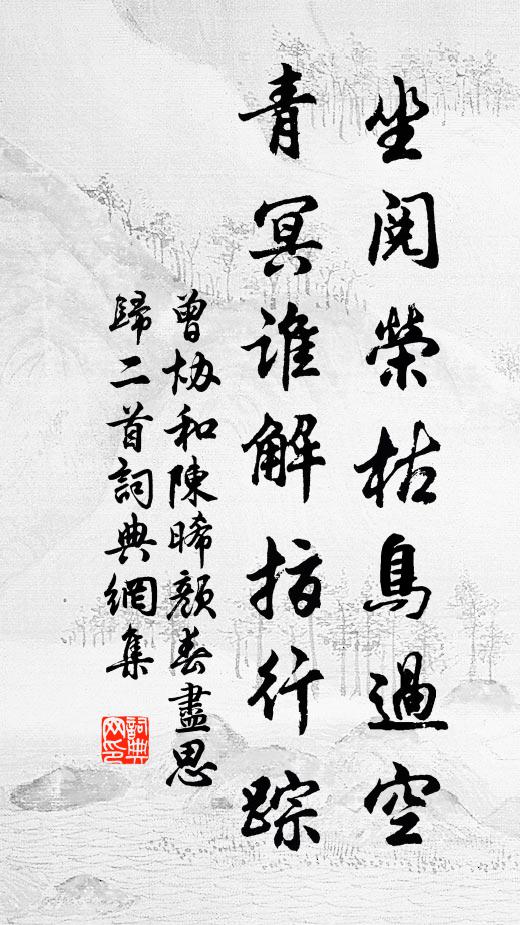 坐閱榮枯鳥過空
青冥誰解指行踪
曾协和陳晞顏春盡思
歸二首詞典網集
詞典
网印